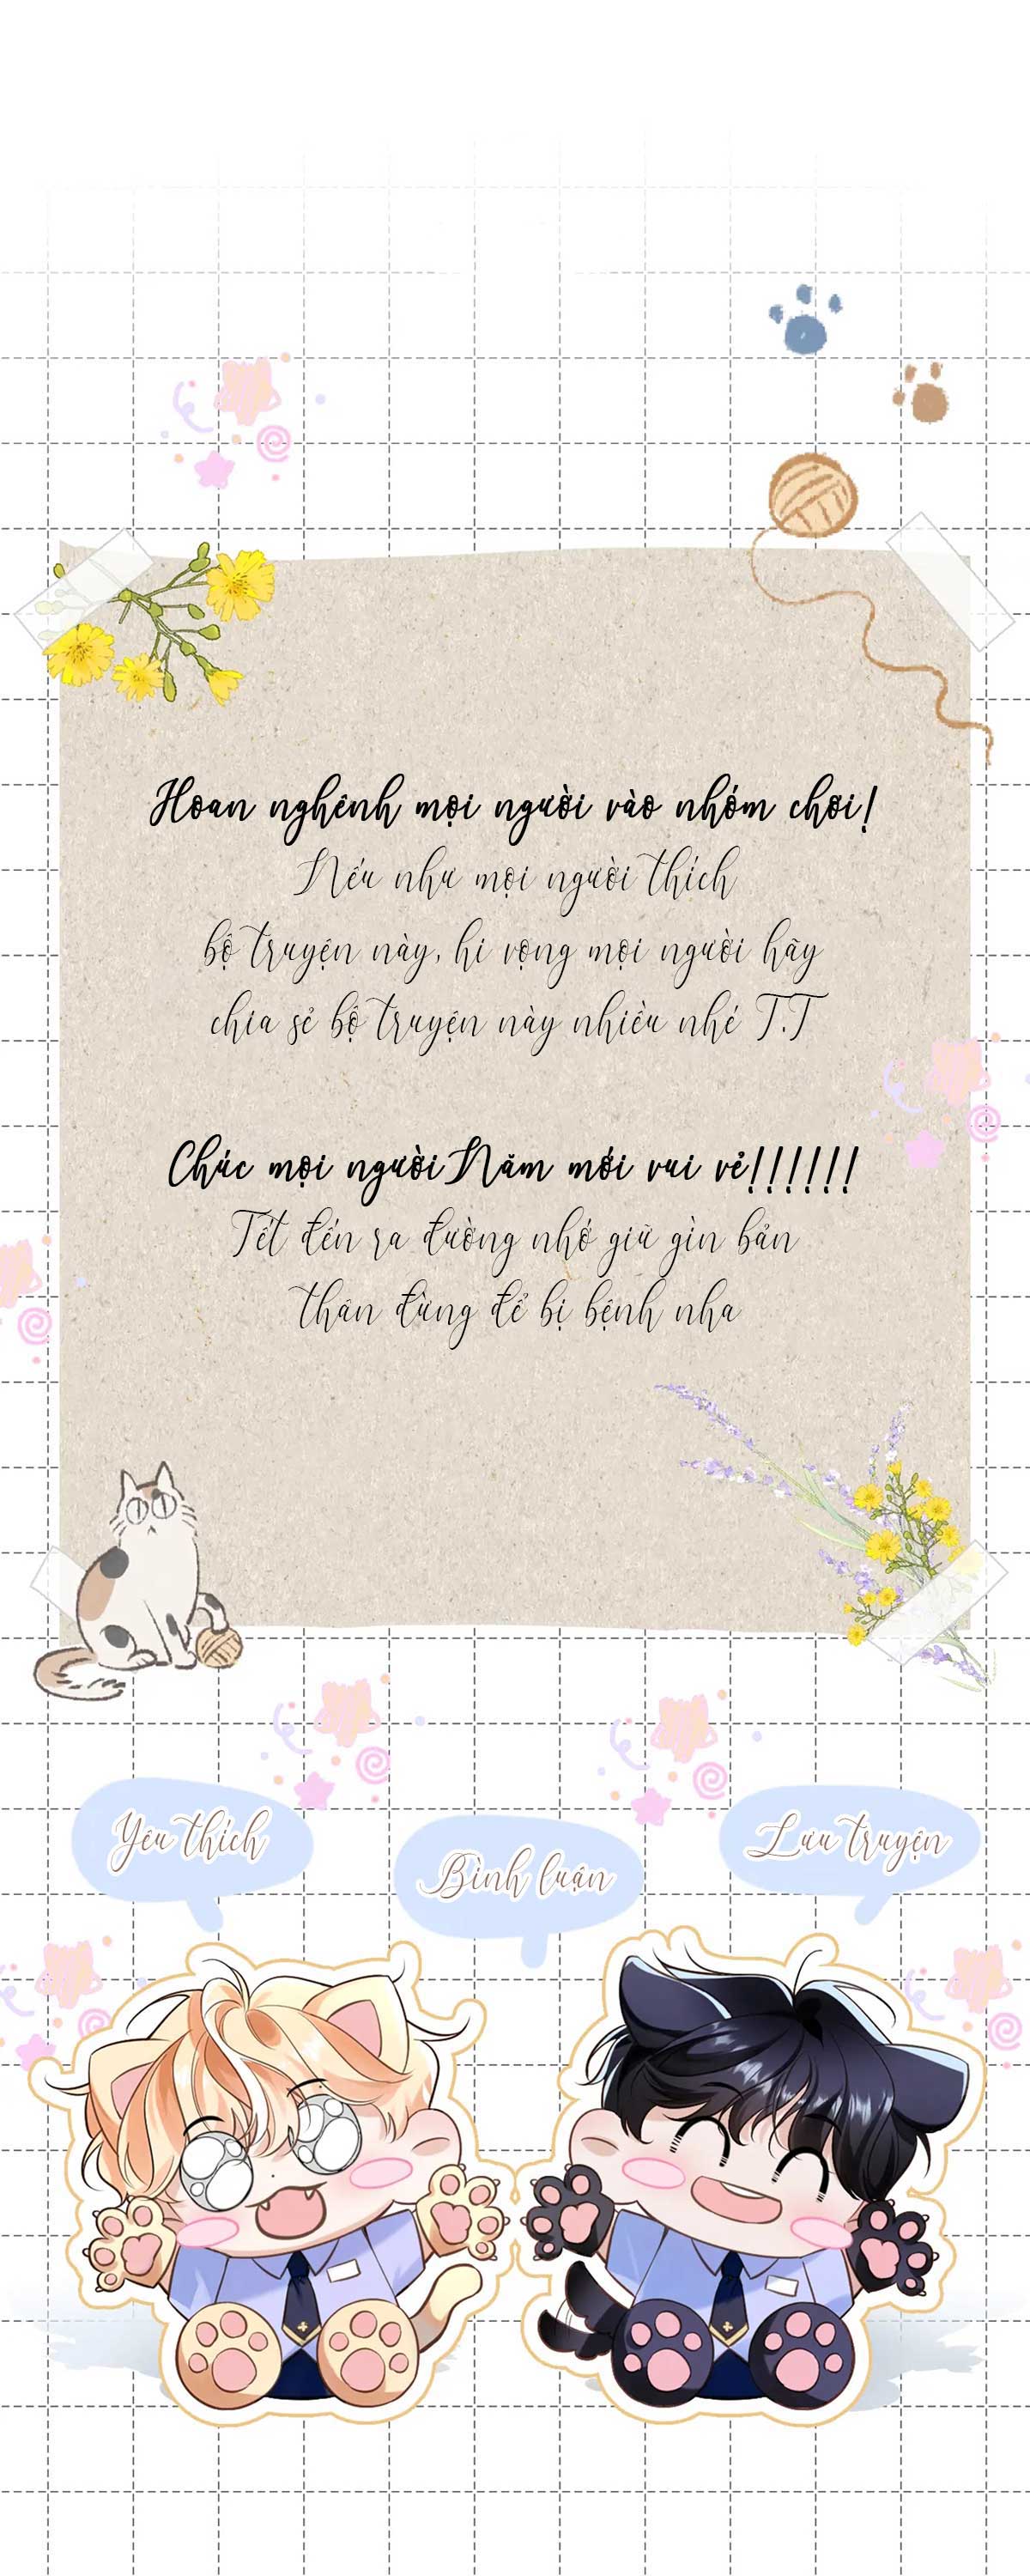 Hoan nghênh mọi người vào nhóm chơi!
Nếu như mọi người thích
bộ truyện này, hi vọng mọi người hãy
chia sẻ bộ truyện này nhiều nhé T.T
Chúc mọi người Năm mới vui vẻ!!!!!!
Tết đến ra đường nhớ giữ gìn bản
thân đừng để bị bệnh nha
Yêu thích
Bình luận
Lưu truyện